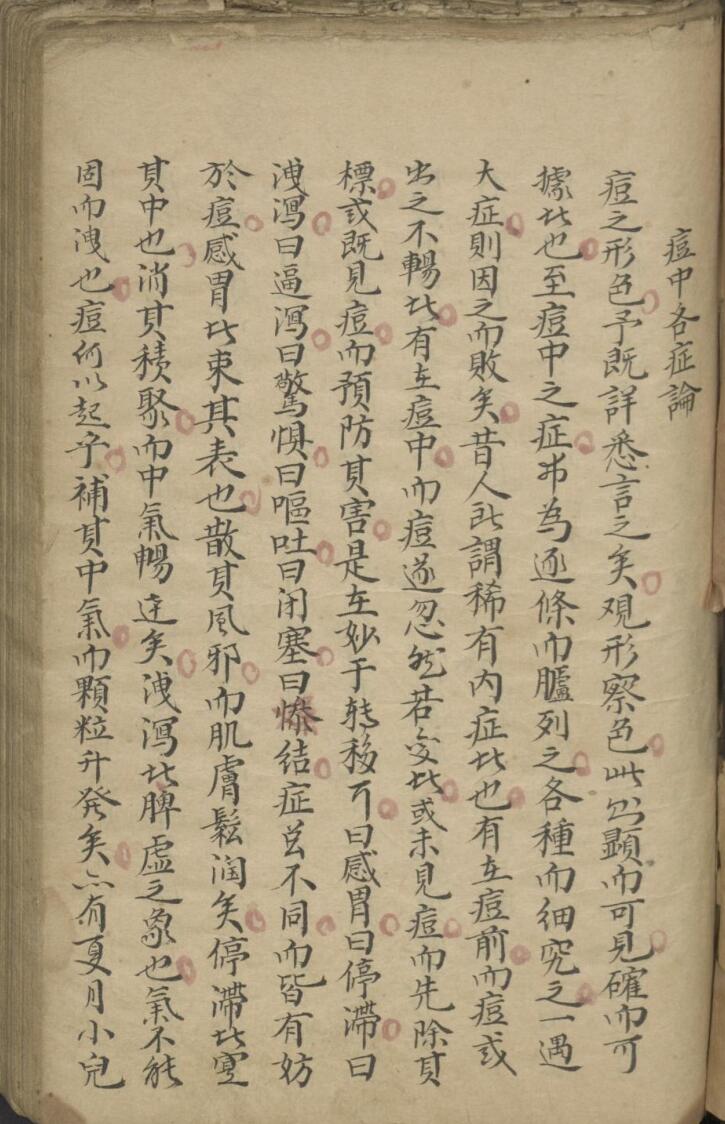 痘中各症論
痘之形色予既詳悉言之矣观形察色此以顕而可見確而可
據者也至痘中之症弗為逐條而臚列之各種而細究之一遇
大症則因之而敗矣昔人所謂稀有內症者也有在痘前而痘或
出之不暢者有在痘中而痘遂忽然若变者或未見痘而先除其
標或既見痘而預防其害是在妙于转移耳曰感胃曰停滯曰
洩瀉曰逼瀉曰驚惧曰嘔吐曰闭塞曰惨結症各不同而皆有妨
於痘感胃者束其表也散其风邪而肌膚鬆润矣停滯者寔
其中也消其積聚而中氣暢达矣洩瀉者脾虛之象也氣不能
固而洩也痘何以起乎補其中氣而顆粒升發矣亦有夏月小兒